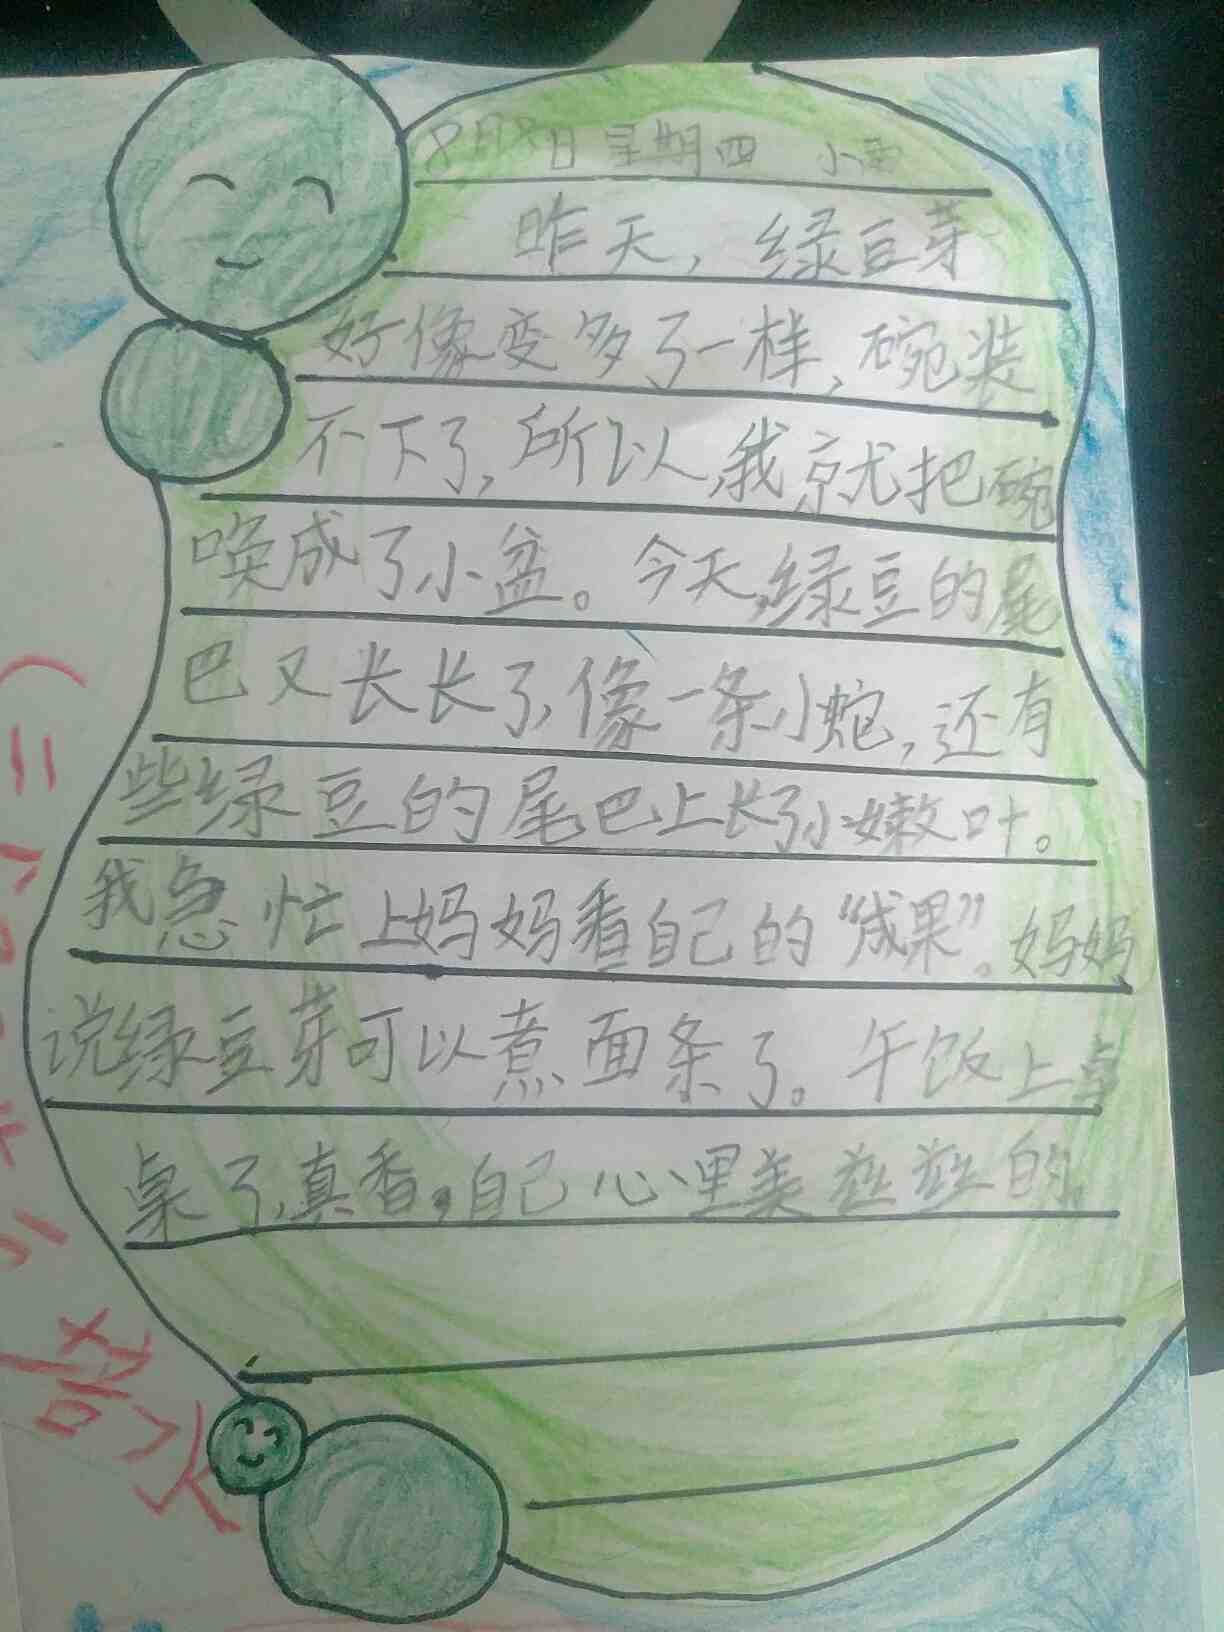 8月8日 星期四 小雨
昨天，绿豆芽
好像变多了一样，碗装
不下了，所以，我就把碗
唤成了小盆。今天，绿豆的尾
巴又长长了，像一条小蛇，还有
些绿豆的尾巴上长了小嫩叶。
我急忙上妈妈看自己的“成果”。妈妈
说绿豆芽可以煮面条了。午饭上桌
桌了，真香。自己心里美滋滋的。